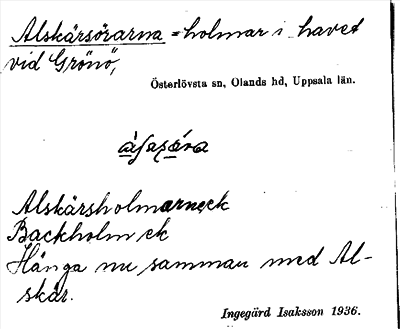 Alskärsörarna = holmar i havet
vid Grönö,
Österlövsta sn, Olands hd, Uppsala län.
Alskärsholmarne, ek
Backholm ek
Hänga nu samman med Al-
skär.
Ingegärd Isaksson 1936.